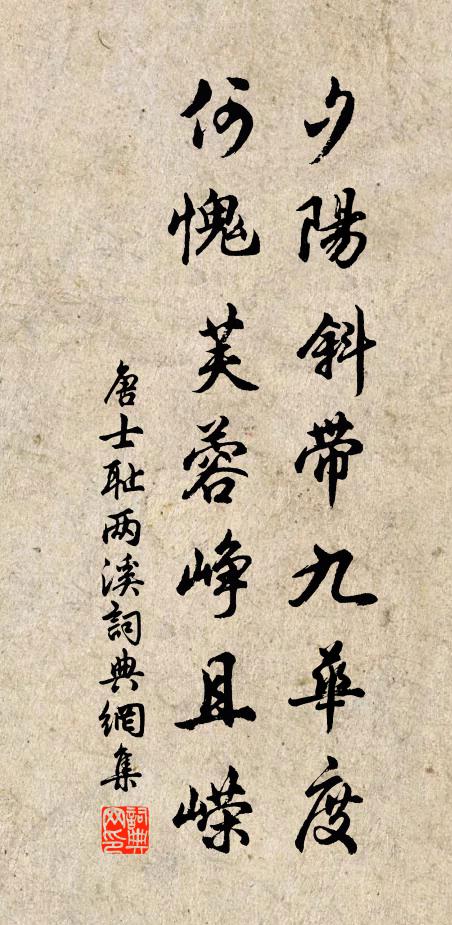 夕陽斜带九華度
何愧芙蓉峥且嵘
唐士耻两溪詞典網集
詞典
网印